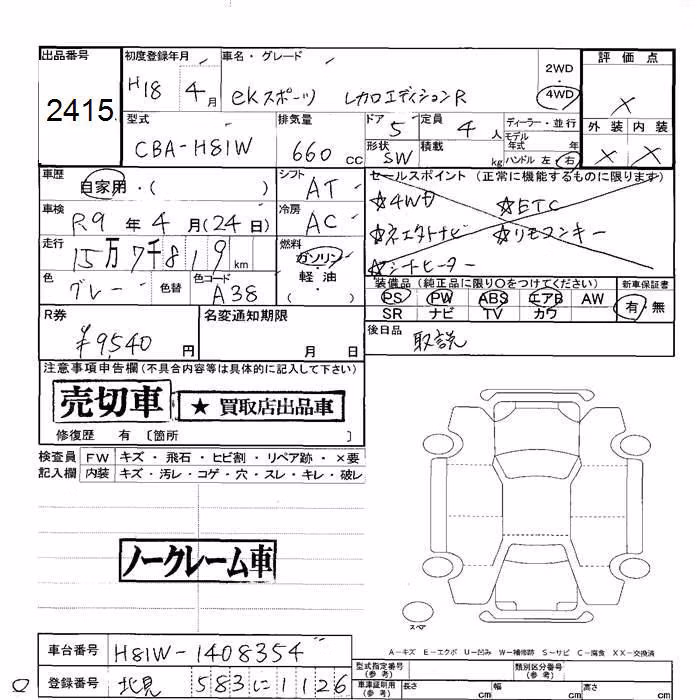 出品番号
2415
初度登録年月
H18 4月
車名・グレード
ekスポーツ レカロエディションR
2WD
4WD
評価点
×
外装 内装
× ×
型式
CBA-H81W
排気量
660 cc
ドア 5
定員 4 人
形状 SW
積載 kg
ディーラー・並行
モデル年式 年
ハンドル 左 右
車歴
自家用・( )
シフト
AT
セールスポイント (正常に機能するものに限ります)
☆4WD ☆ETC
☆ネエクトナビ ☆リモコンキー
☆シートヒーター
車検
R9 年 4 月(24 日)
冷房
AC
走行
15万7千819 km
燃料
ガソリン
軽油
( )
色
グレー
色替
色コード
A38
装備品 (純正品に限り○をつけてください)
PS PW ABS エアB AW
SR ナビ TV カワ
新車保証書
有・無
R券
¥9,540 円
名変通知期限
月 日
後日品
取説
注意事項申告欄(不具合内容等は具体的に記入して下さい)
売切車
★ 買取店出品車
修復歴 有 〔箇所 〕
検査員記入欄
FW キズ・飛石・ヒビ割・リペア跡・×要
内装 キズ・汚レ・コゲ・穴・スレ・キレ・破レ
ノークレーム車
スペア
A－キズ E－エクボ U－凹み W－補修跡 S－サビ C－腐食 XX－交換済
車台番号
H81W-1408354
登録番号
北見 583 に 1126
型式指定番号(参考)
類別区分番号(参考)
車庫証明用(参考)
長さ cm
幅 cm
高さ cm